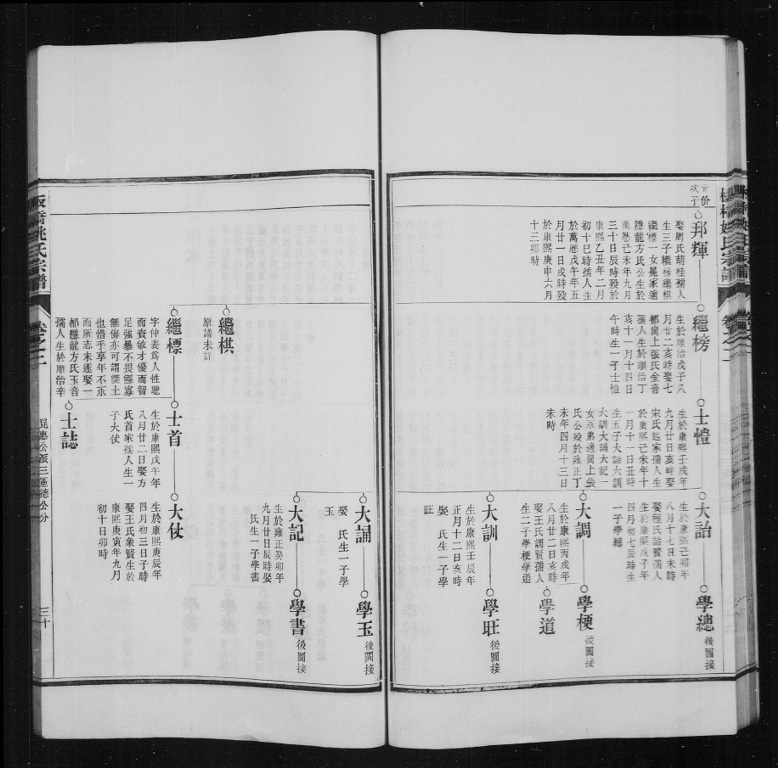 價
次子
邦輝
生三子繼榜繼棋
繼標一女晃家適
隱龍方氏公生於
萬曆己未年九月
三十日辰時歿於
康熙乙丑年二月
初十巳時孺人生
於萬曆戊午年五
月廿一日戌時歿
於康熙庚申六月
十三卯時
繼榜
生於順治戊子八
月廿二亥時娶七
都崗上張氏金音
孺人生於順治丁
亥十一月十四日
午時生一子士愷
士愷
生於康熙壬戌年
於康熙己未年十
一月十一日丑時
生五子大詒大調
大訓大誦大記一
氏公歿於雍正丁
未年四月十三日
未時
大詒
生於康熙己卯年
八月十七日未時
生於康熙戊子年
四月初七辰時生
一子學總
學總
後圖接
大調
生於康熙丙戌年
八月廿二日亥時
娶王氏調賢孺人
生二子學梗學道
學梗
後圖接
學道
大訓
生於康熙壬辰年
正月十二日亥時
娶 氏生一子學
旺
學旺
後圖接
大誦
娶 氏生一子學
玉
學玉
後圖接
大記
生於雍正癸卯年
九月廿日辰時娶
氏生一子學書
學書
後圖接
繼棋
原譜未訂
繼標
字仲表為人性聰
而資敏才優而智
足強暴不畏鰥寡
無侮亦可謂傑士
也惜乎享年不永
而所志未遂娶一
都隱龍方氏玉音
孺人生於順治辛
士首
生於康熙戊午年
八月廿二日娶方
氏首家孺人生一
子大仗
大仗
生於康熙庚辰年
四月初三日子時
娶王氏象賢生於
康熙庚寅年九月
初十日卯時
士誌
板橋姚氏宗譜
卷之三
三十